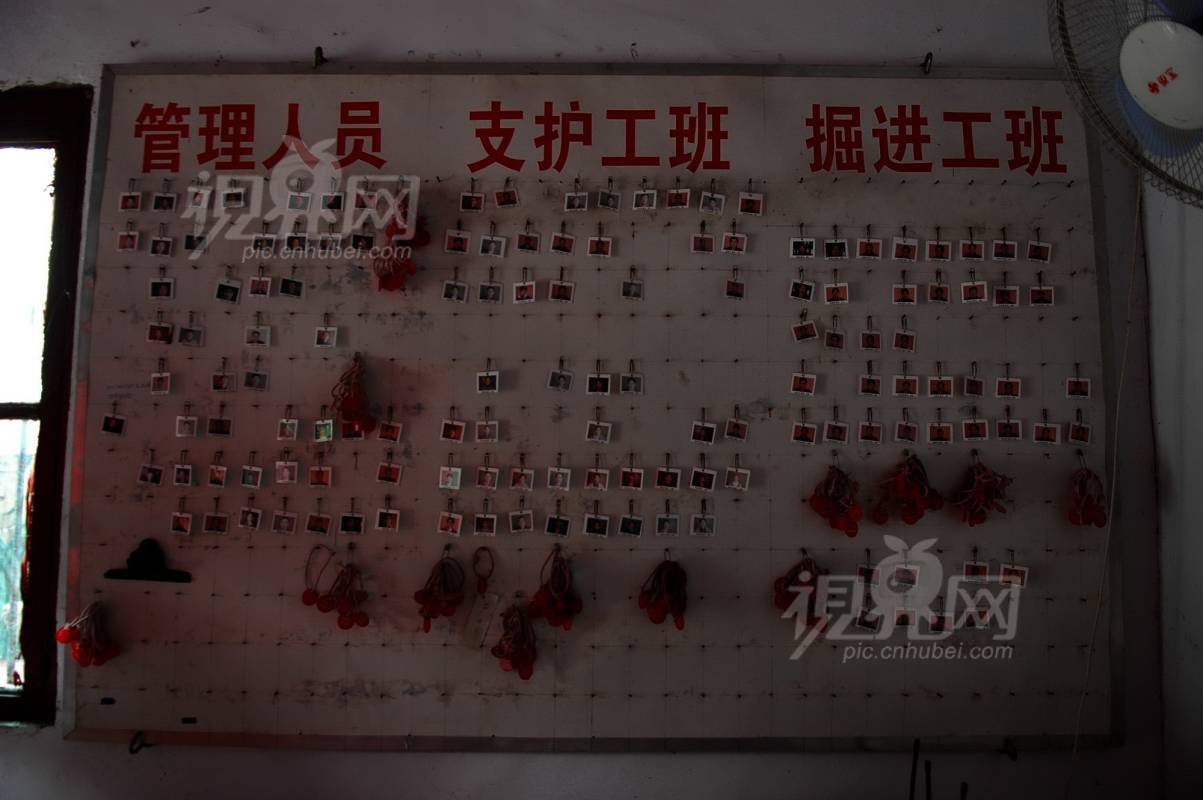 管理人员 支护工班 掘进工班
视界网
pic.cnhubei.com
视界网
pic.cnhubei.com